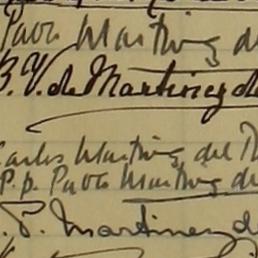 Pablo Martinez del
B. V. de Martinez de
Carlos Martinez del R
P. p. Pablo Martinez de
. P. Martinez de